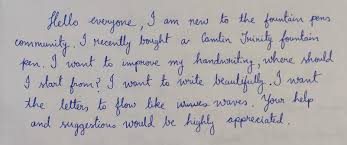 Hello everyone, I am new to the fountain pens
community. I recently bought a Camlin Trinity fountain
pen. I want to improve my handwriting, where should
I start from? I want to write beautifully. I want
the letters to flow like waves. Your help
and suggestions would be highly appreciated.